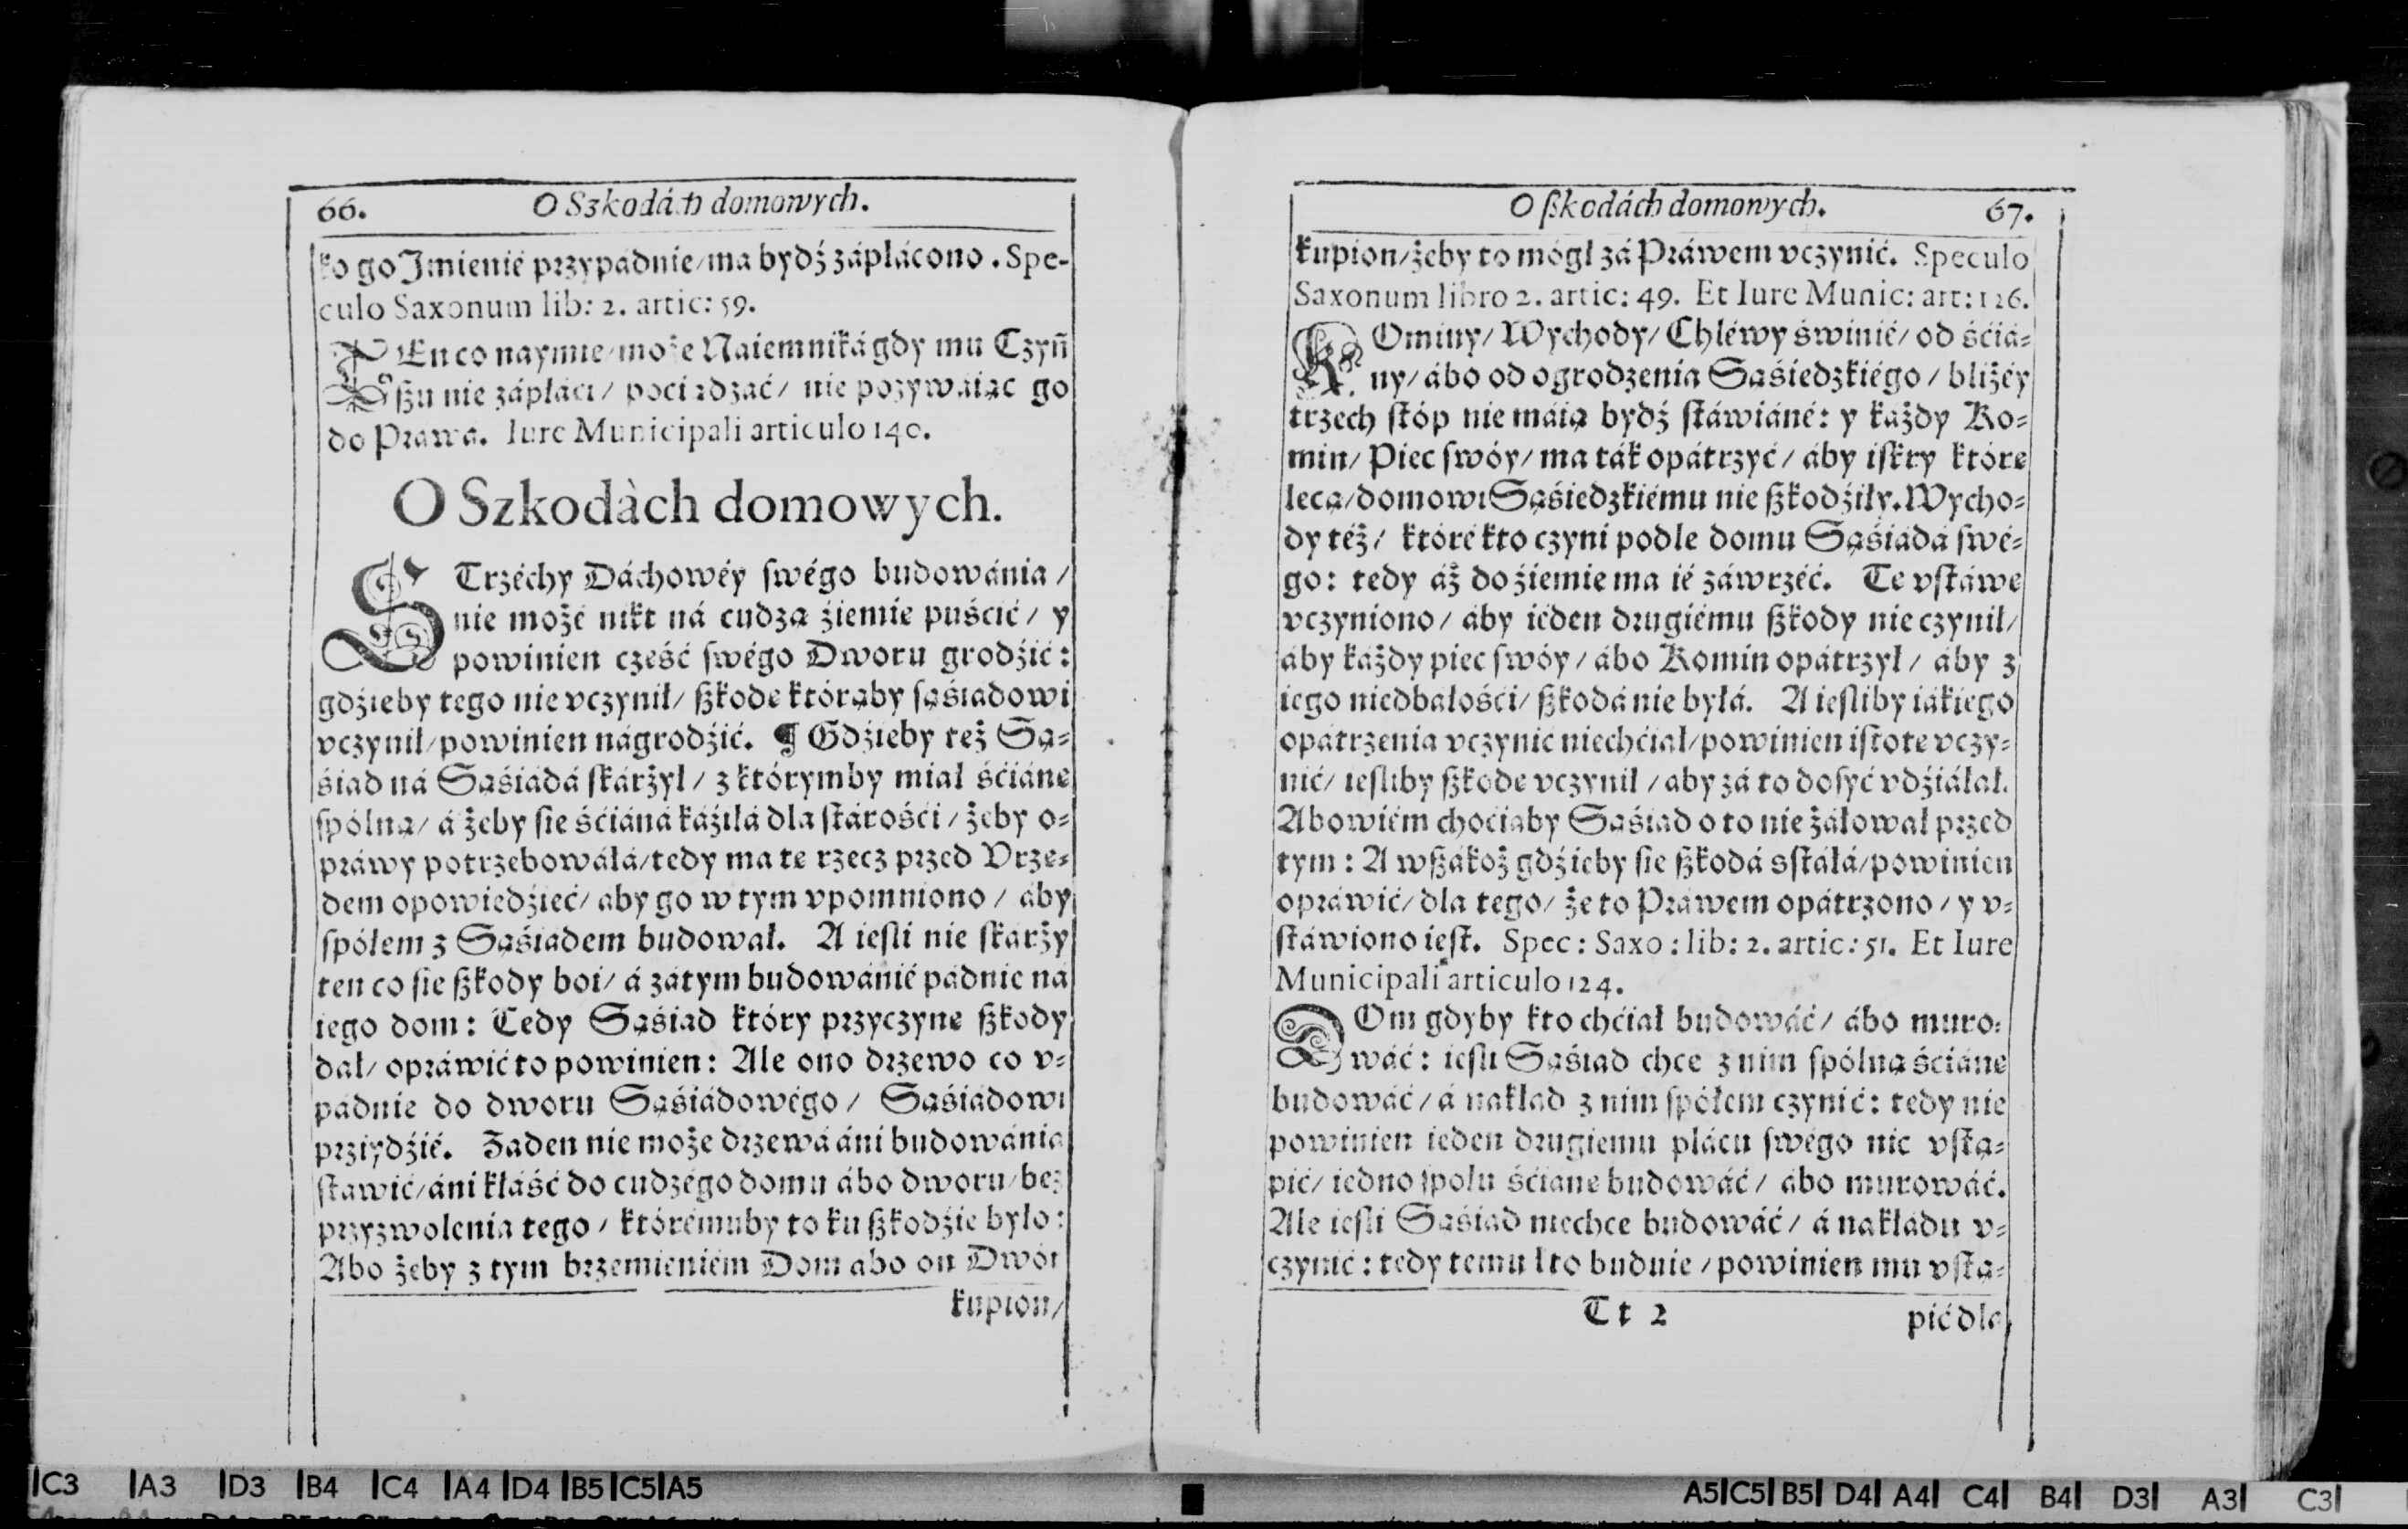 66. O Szkodách domowych.
ko go Jmienié przypádnie/ma bydź zápłácono. Spe-
culo Saxonum lib: 2. artic: 59.
TEn co naymie/może Naiemniká gdy mu Czyń
ſzu nie zápłáci/ pociądzáć/ nie pozywáiąc go
do Prawa. Iure Municipali articulo 140.
O Szkodàch domowych.
STrzéchy Dáchowéy ſwégo budowánia/
nie możé nikt ná cudzą źiemie puśćić/ y
powinien cześć ſwégo Dworu grodźić:
gdźieby tego nie vczynił/ ſzkode którąby ſąśiadowi
vczynił/powinien nágrodźić. ¶ Gdźieby też Są-
śiad ná Sąśiádá ſkárżył/ z którymby miał śćiáne
ſpólną/ á żeby ſie śćiáná káźiłá dla ſtárośći/ żeby o-
práwy potrzebowáłá/tedy ma te rzecz przed Vrze-
dem opowiedźieć/ aby go w tym vpomniono/ áby
ſpółem z Sąśiadem budował. A ieſli nie ſkárży
ten co ſie ſzkody boi/ á zátym budowánié pádnie ná
iego dom: Tedy Sąśiad który przyczyne ſzkody
dał/ opráwić to powinien: Ale ono drzewo co v-
pádnie do dworu Sąśiádowégo/ Sąśiádowi
prziydźié. Żaden nie może drzewá áni budowánia
ſtáwić/áni kłáść do cudzégo domu ábo dworu/bez
przyzwolenia tego/ którémuby to ku ſzkodźie było:
Abo żeby z tym brzemieniém Dom abo on Dwór
kupion/
O ſzkodách domowych. 67.
kupion/żeby to mógł zá Práwem vczynić. Speculo
Saxonum libro 2. artic: 49. Et Iure Munic: art: 126.
KOminy/ Wychody/ Chléwy świnié/ od śćiá-
ny/ ábo od ogrodzenia Sąśiedzkiégo/ bliżéy
trzech ſtóp nie máią bydź ſtáwiáné: y káżdy Ko-
min/ Piec ſwóy/ ma ták opátrzyć/ áby iſkry które
lecą/domowi Sąśiedzkiému nie ſzkodźiły. Wycho-
dy téż/ któré kto czyni podle domu Sąśiádá ſwé-
go: tedy áż do źiemie ma ié záwrzéć. Te vſtáwe
vczyniono/ áby ieden drugiému ſzkody nie czynił/
áby káżdy piec ſwóy/ ábo Komin opátrzył/ áby z
iego niedbałośći/ ſzkodá nie byłá. A ieſliby iákiego
opátrzenia vczynić niechćiał/powinien iſtote vczy-
nić/ ieſliby ſzkode vczynił/ aby zá to doſyć vdźiáłał.
Abowiém choćiaby Sąśiad o to nie żáłował przed
tym: A wſzákoż gdźieby ſie ſzkodá sſtáłá/powinien
opráwić/ dla tego/ że to Práwem opátrzono/ y v-
ſtáwiono ieſt. Spec: Saxo: lib: 2. artic: 51. Et Iure
Municipali articulo 124.
DOm gdyby kto chćiał budowáć/ ábo muro-
wáć: ieſli Sąśiad chce z nim ſpólną śćiáne
budowáć/ á nakład z nim ſpółem czynić: tedy nie
powinien ieden drugiemu plácu ſwégo nic vſtą-
pić/ iedno ſpołu śćiáne budowáć/ ábo murowáć.
Ale ieſli Sąśiad niechce budowáć/ á nakładu v-
czynić: tedy temu kto buduie/ powinien mu vſtą-
Tt 2 pić dla
C3 A3 D3 B4 C4 A4 D4 B5 C5 A5
A5 C5 B5 D4 A4 C4 B4 D3 A3 C3